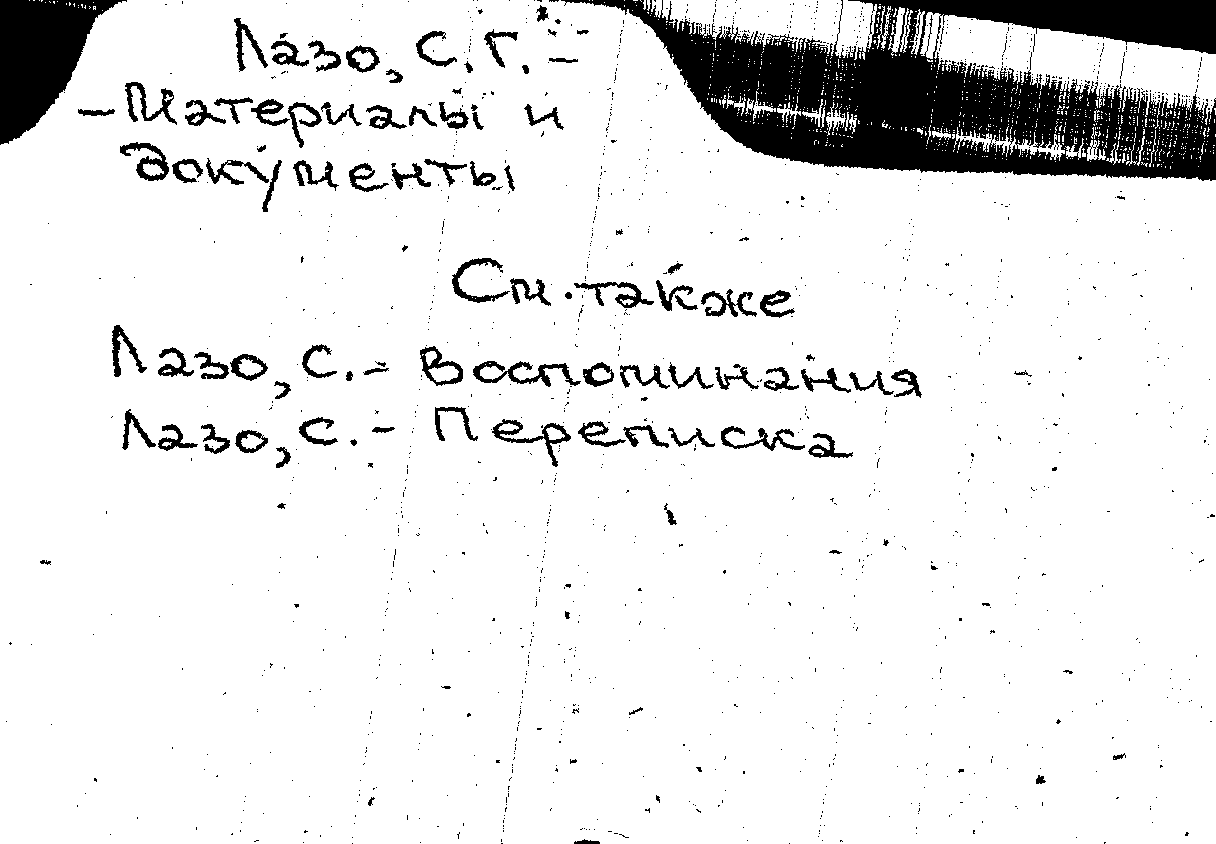 Лазо, С. Г. –
– Материалы и
документы
См. также
Лазо, С. – Воспоминания
Лазо, С. – Переписка